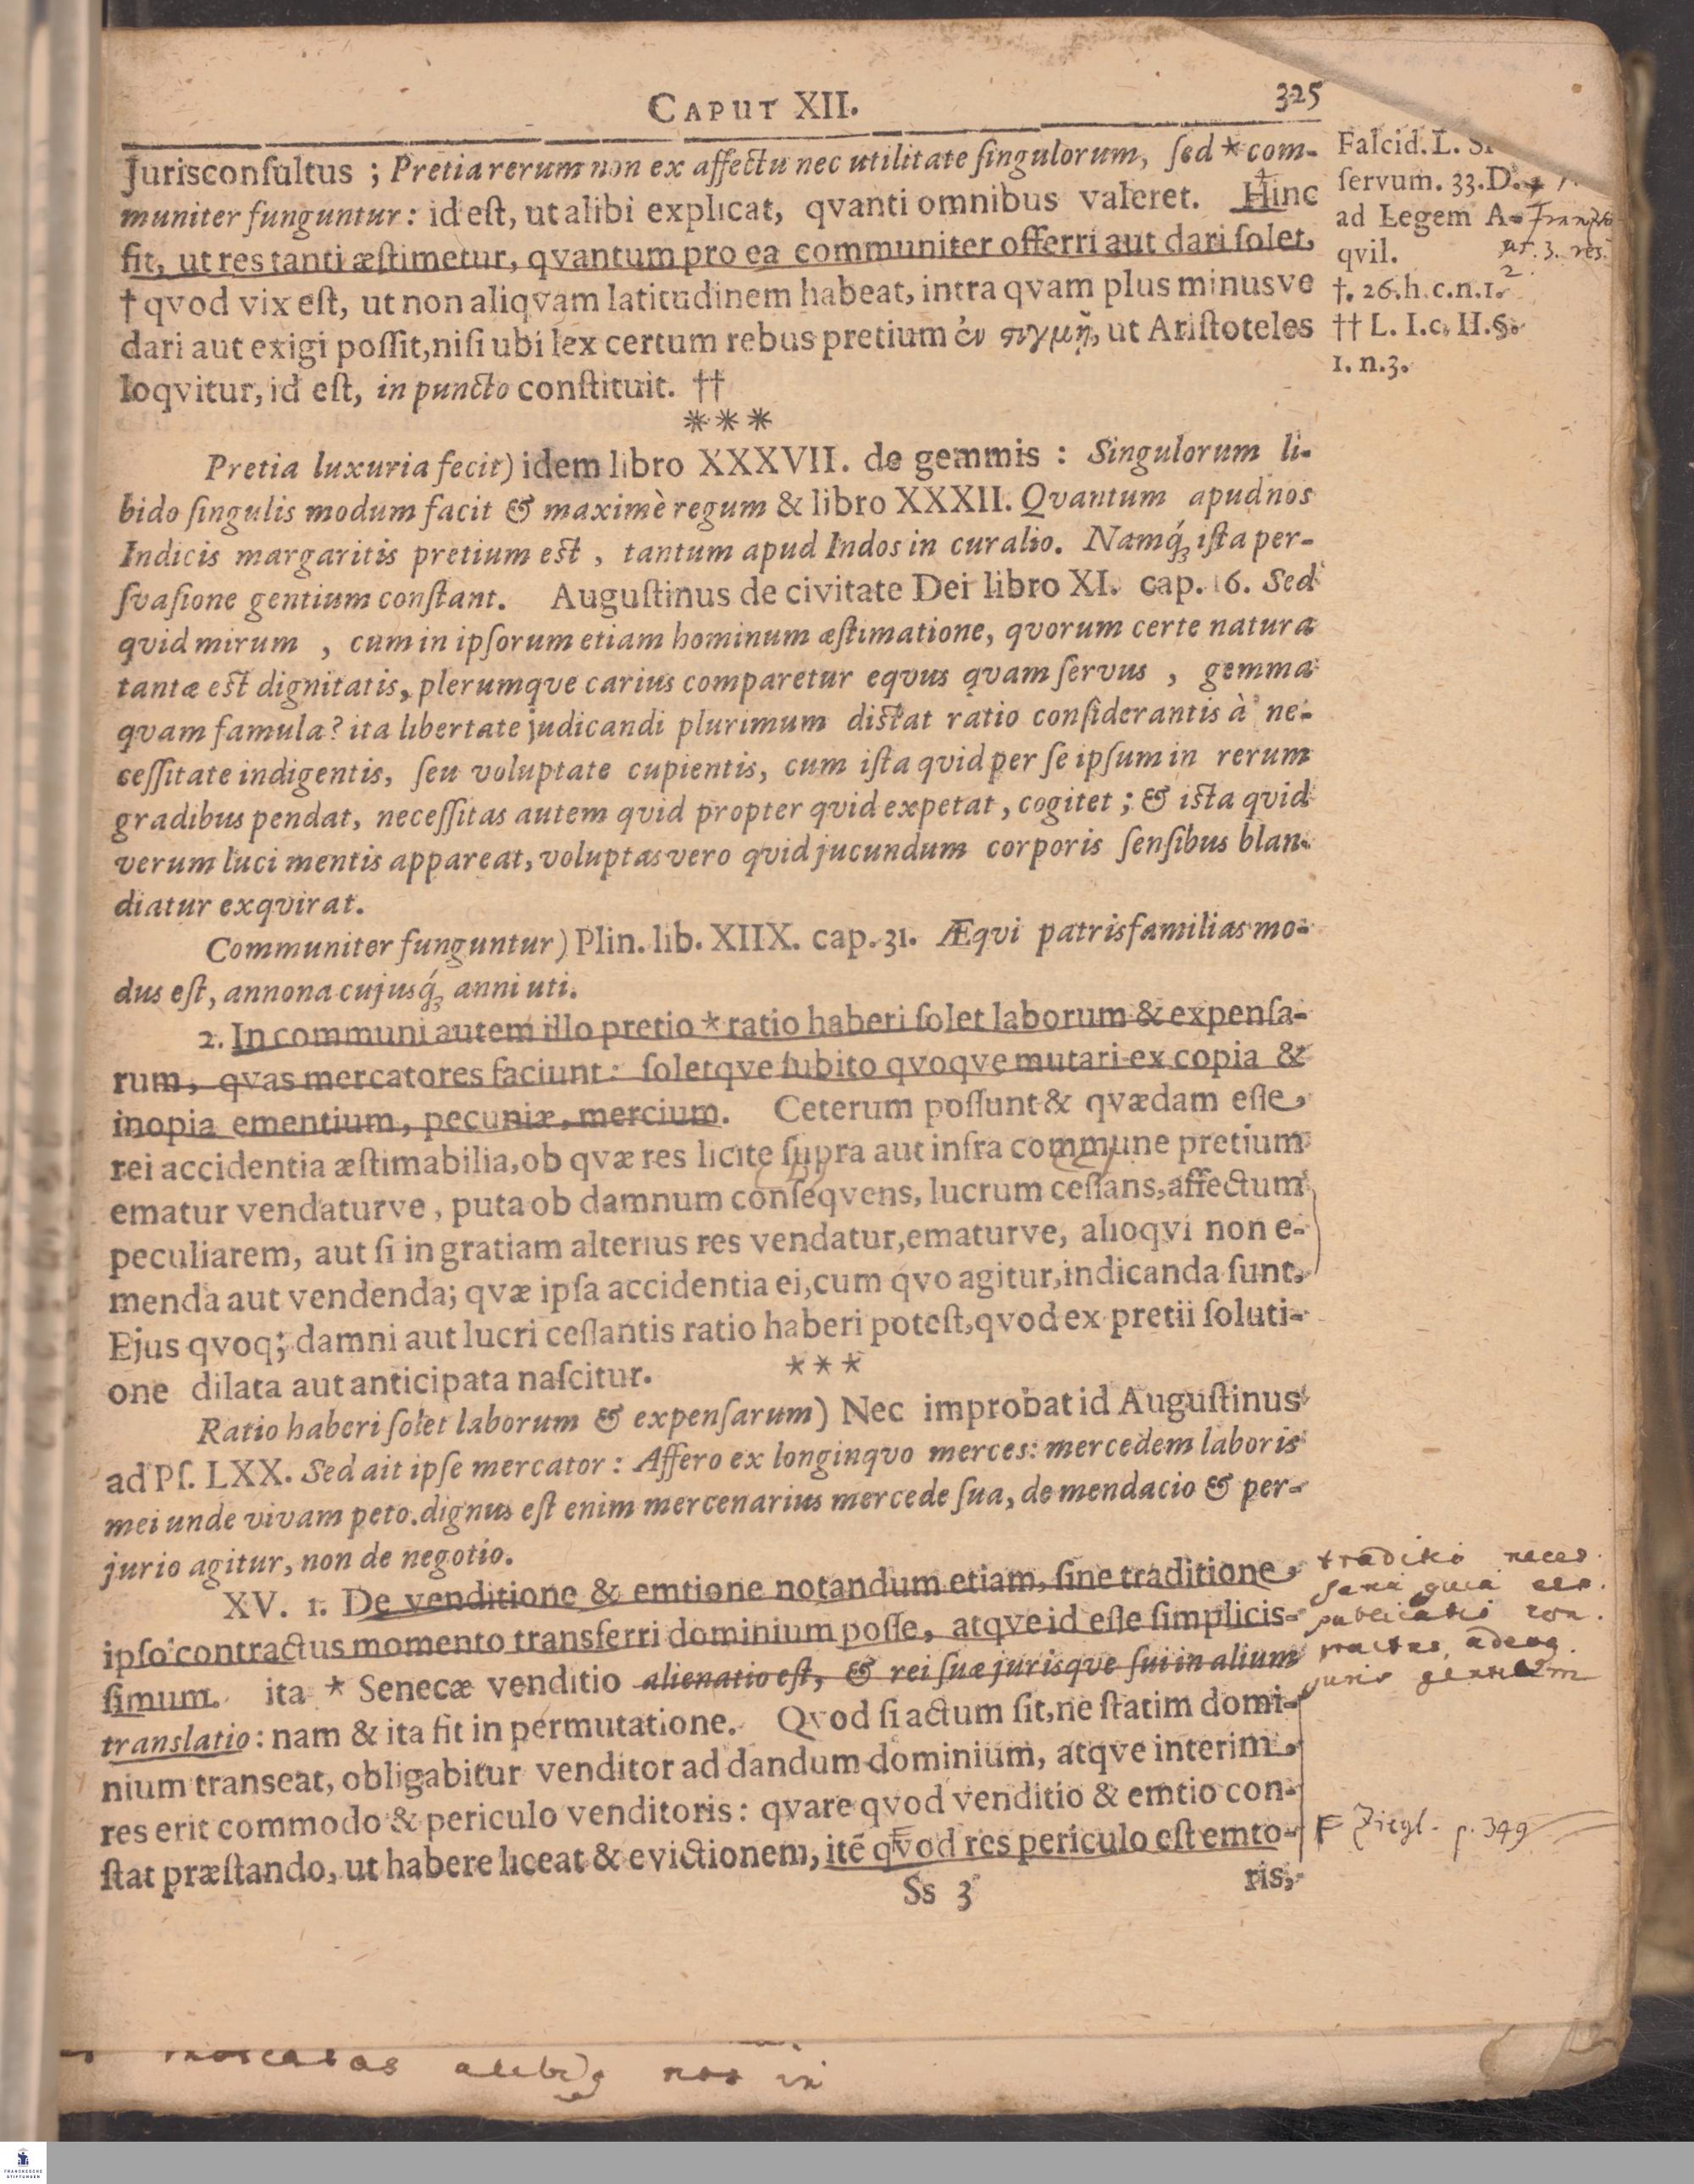 CAPUT XII.
325
Jurisconſultus ; Pretia rerum non ex affectu nec utilitate ſingulorum, ſed * com-
muniter funguntur : id eſt, ut alibi explicat, qvanti omnibus valeret. Hinc
fit, ut res tanti æſtimetur, qvantum pro ea communiter offerri aut dari ſolet,
† qvod vix eſt, ut non aliqvam latitudinem habeat, intra qvam plus minusve
dari aut exigi poſſit, niſi ubi lex certum rebus pretium ἐν στιγμῇ, ut Ariſtoteles
loqvitur, id eſt, in puncto conſtituit. ††
* * *
Pretia luxuria fecit) idem libro XXXVII. de gemmis : Singulorum li-
bido ſingulis modum facit & maximè regum & libro XXXII. Qvantum apud nos
Indicis margaritis pretium eſt , tantum apud Indos in curalio. Namq́; iſta per-
ſvaſione gentium conſtant. Auguſtinus de civitate Dei libro XI. cap. 16. Sed
qvid mirum , cum in ipſorum etiam hominum æſtimatione, qvorum certe natura
tantæ eſt dignitatis, plerumqve carius comparetur eqvus qvam ſervus , gemma
qvam famula? ita libertate judicandi plurimum diſtat ratio conſiderantis à ne-
ceſſitate indigentis, ſeu voluptate cupientis, cum iſta qvid per ſe ipſum in rerum
gradibus pendat, neceſſitas autem qvid propter qvid expetat, cogitet ; & iſta qvid
verum luci mentis appareat, voluptas vero qvid jucundum corporis ſenſibus blan-
diatur exqvirat.
Communiter funguntur) Plin. lib. XIIX. cap. 31. Æqvi patrisfamilias mo-
dus eſt, annona cujusq́; anni uti.
2. In communi autem illo pretio * ratio haberi ſolet laborum & expenſa-
rum, qvas mercatores faciunt : ſoletqve ſubito qvoqve mutari ex copia &
inopia ementium, pecuniæ, mercium. Ceterum poſſunt & qvædam eſſe
rei accidentia æſtimabilia, ob qvæ res licite ſupra aut infra commune pretium
ematur vendaturve, puta ob damnum conſeqvens, lucrum ceſſans, affectum
peculiarem, aut ſi in gratiam alterius res vendatur, ematurve, alioqvi non e-
menda aut vendenda; qvæ ipſa accidentia ei, cum qvo agitur, indicanda ſunt.
Ejus qvoq; damni aut lucri ceſſantis ratio haberi poteſt, qvod ex pretii ſoluti-
one dilata aut anticipata naſcitur. * * *
Ratio haberi ſolet laborum & expenſarum) Nec improbat id Auguſtinus
ad Pſ. LXX. Sed ait ipſe mercator : Affero ex longinqvo merces: mercedem laboris
mei unde vivam peto. dignus eſt enim mercenarius mercede ſua, de mendacio & per-
jurio agitur, non de negotio.
XV. 1. De venditione & emtione notandum etiam, ſine traditione
ipſo contractus momento transferri dominium poſſe, atqve id eſſe ſimplicis-
ſimum. ita * Senecæ venditio alienatio eſt, & rei ſuæ jurisqve ſui in alium
translatio : nam & ita fit in permutatione. Qvod ſi actum ſit, ne ſtatim domi-
nium transeat, obligabitur venditor ad dandum dominium, atqve interim
res erit commodo & periculo venditoris : qvare qvod venditio & emtio con-
ſtat præſtando, ut habere liceat & evictionem, itē qvod res periculo eſt emto-
Ss 3
ris,
Falcid. L. Si
ſervum. 33. D.
ad Legem A-
qvil.
†. 26. h. c. n. 1.
†† L. I. c. II. §.
1. n. 3.
3. res.
2.
traditio neces
quia
juris gentium
F Ziegl. p. 349
nos in
FRANCKESCHE
STIFTUNGEN